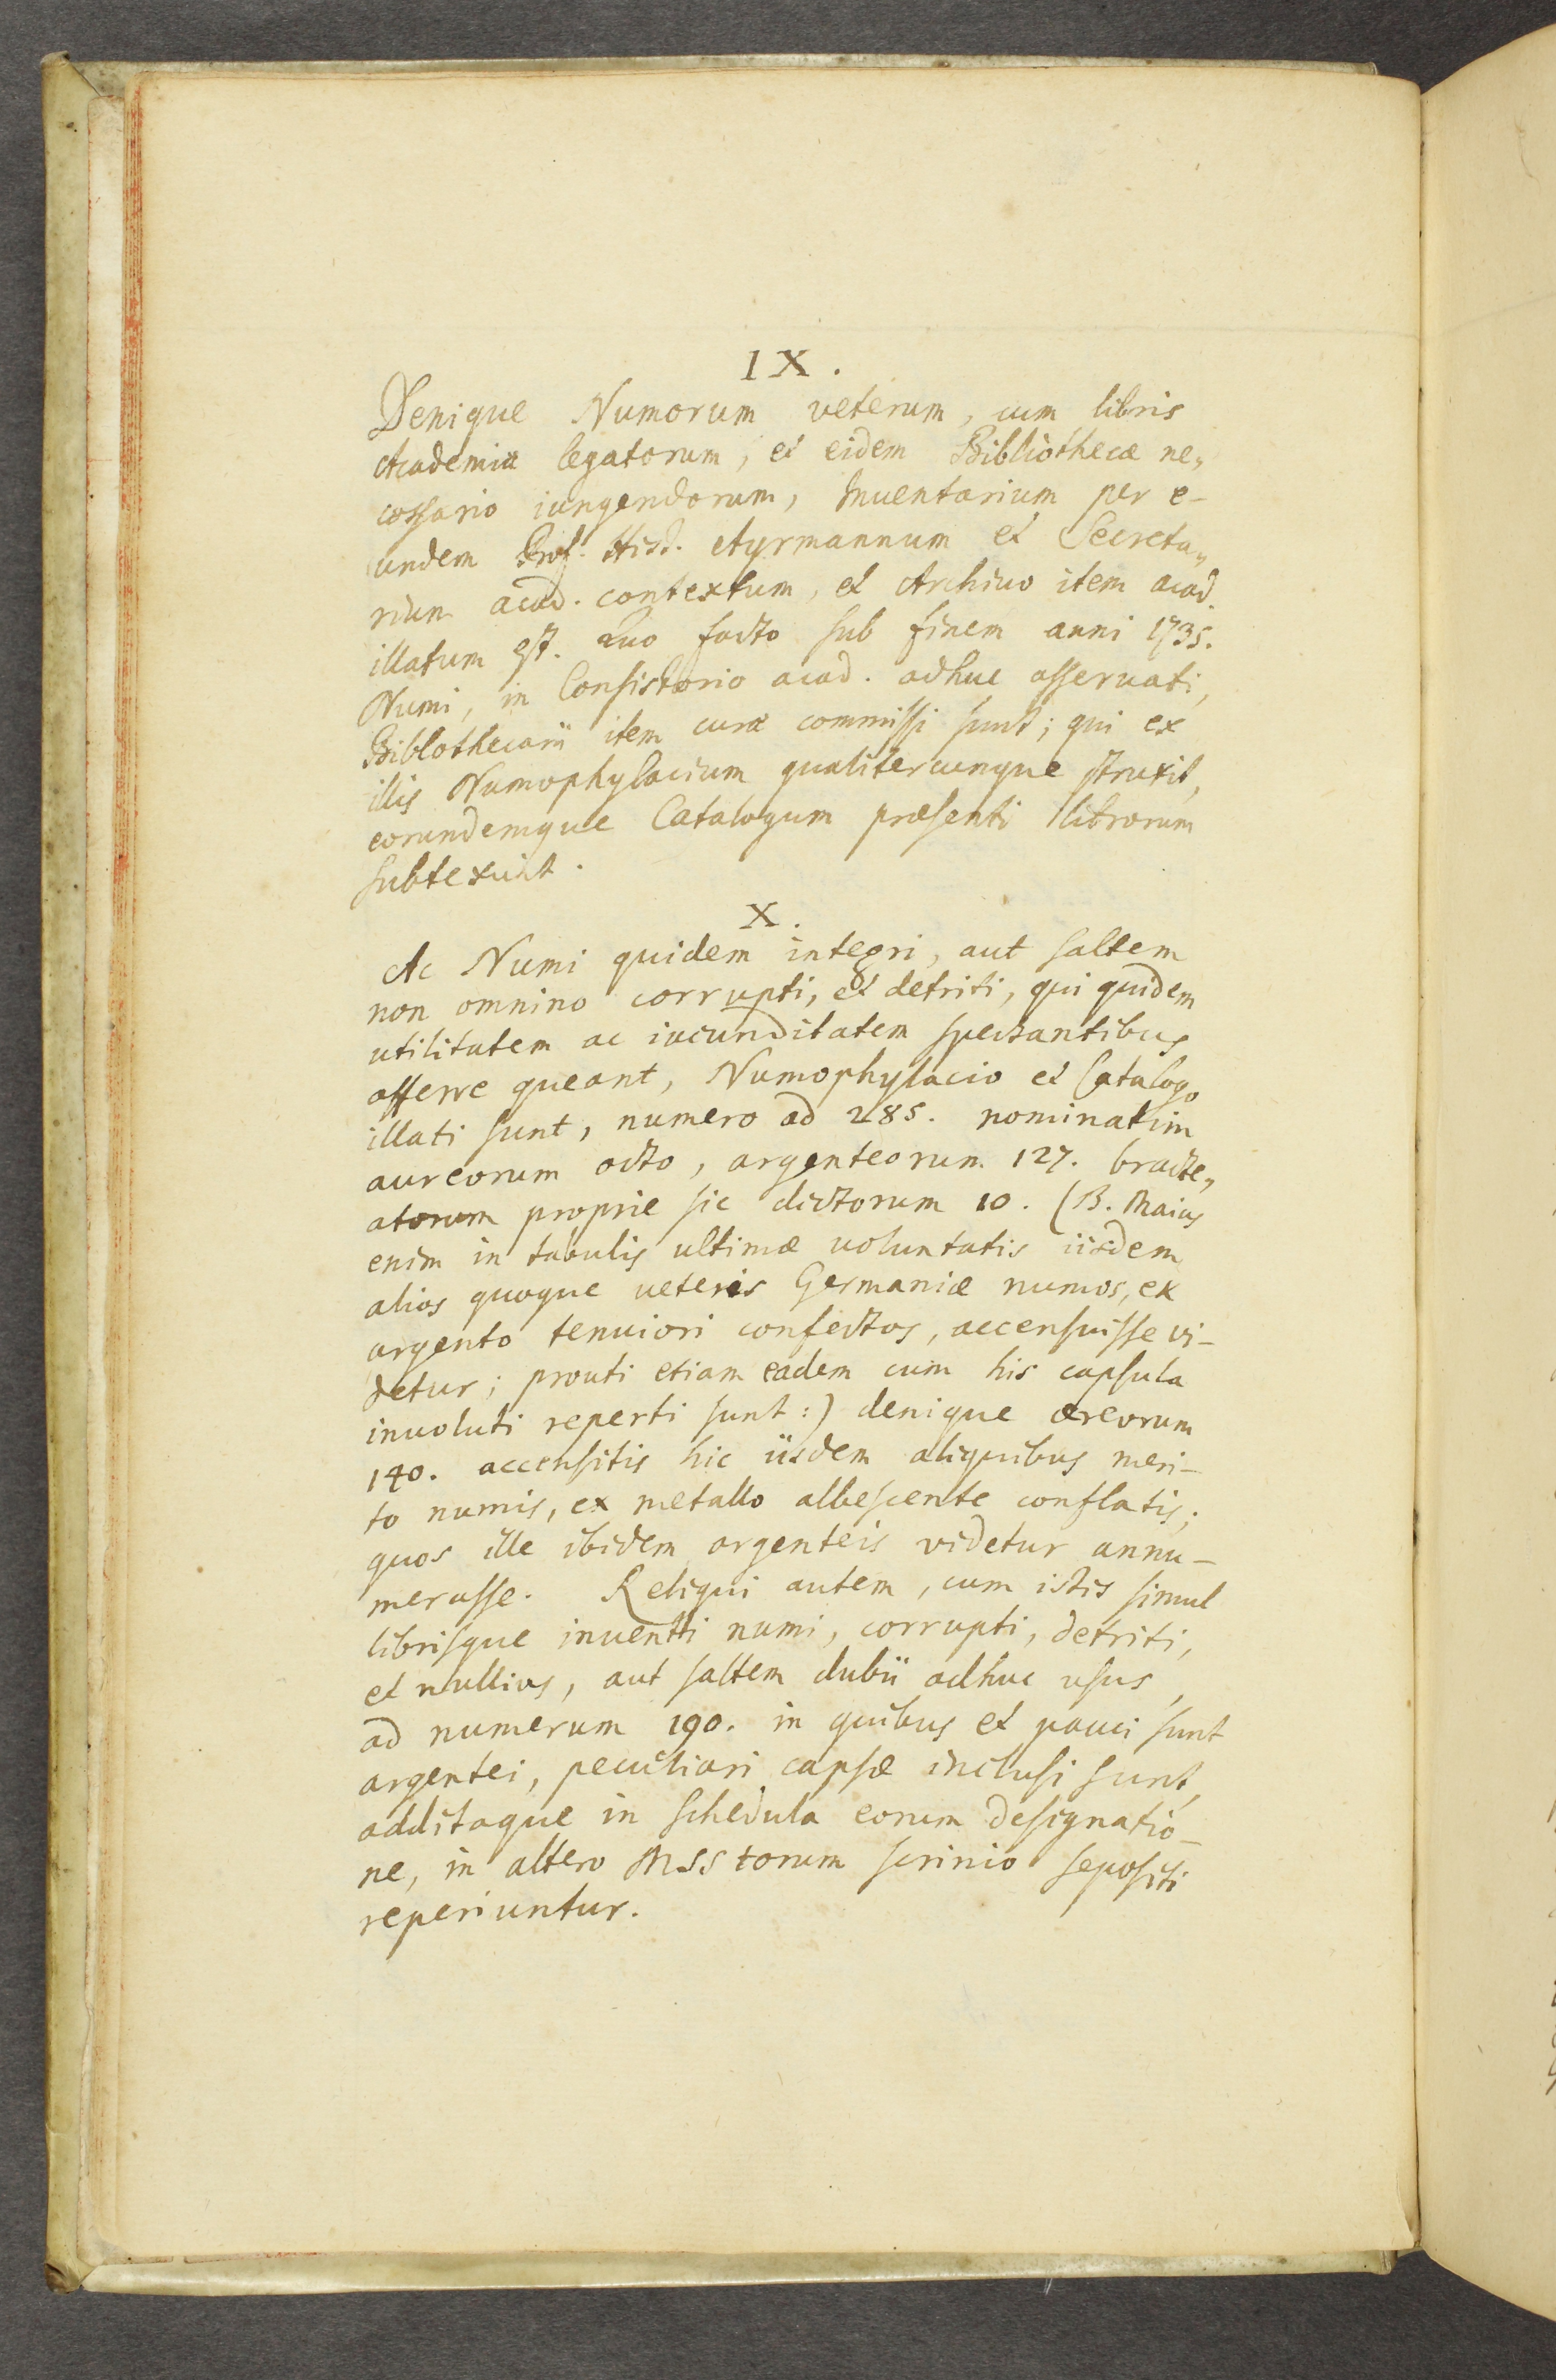 IX.
Denique Numorum veterum, cum libris
Academiæ legatorum, et eidem Bibliothecæ ne„
cessario iungendorum, Inuentarium per e-
undem Prof. Hist. Ayrmannum et Secreta„
rium acad. contextum, et Archiuo item acad.
illatum est. Quo facto sub finem anni 1735.
Numi, in Consistorio acad. adhuc asseruati,
Biblothecarii item curæ commissi sunt; qui ex
illis Numophylacium qualitercunque struxit,
eorundemque Catalogum præsenti librorum
subtexuit.
X.
Ac Numi quidem integri, aut saltem
non omnino corrupti, et detriti, qui quidem
utilitatem ac iucunditatem spectantibus
afferre queant, Numophylacio et Catalogo
illati sunt, numero ad 285. nominatim
aureorum octo, argenteorum 127. bracte„
atorum proprie sic dictorum 10. (B. Maius
enim in tabulis ultimæ uoluntatis iisdem
alios quoque ueteris Germaniæ numos, ex
argento tenuiori confectos, accensuisse vi-
detur; prouti etiam eadem cum his capsula
inuoluti reperti sunt:) denique æreorum
140. accensitis hic iisdem aliquibus meri-
to numis, ex metallo albescente conflatis;
quos ille ibidem argenteis videtur annu-
merasse. Reliqui autem, cum istis simul
librisque inuenti numi, corrupti, detriti,
et nullius, aut saltem dubii adhuc usus,
ad numerum 190. in quibus et pauci sunt
argentei, peculiari capsæ inclusi sunt,
additaque in schedula eorum designatio-
ne, in altero MSStorum scrinio sepositi
reperiuntur.